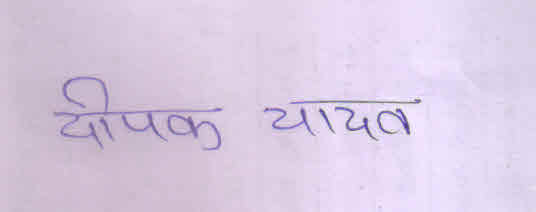 दीपक यादव